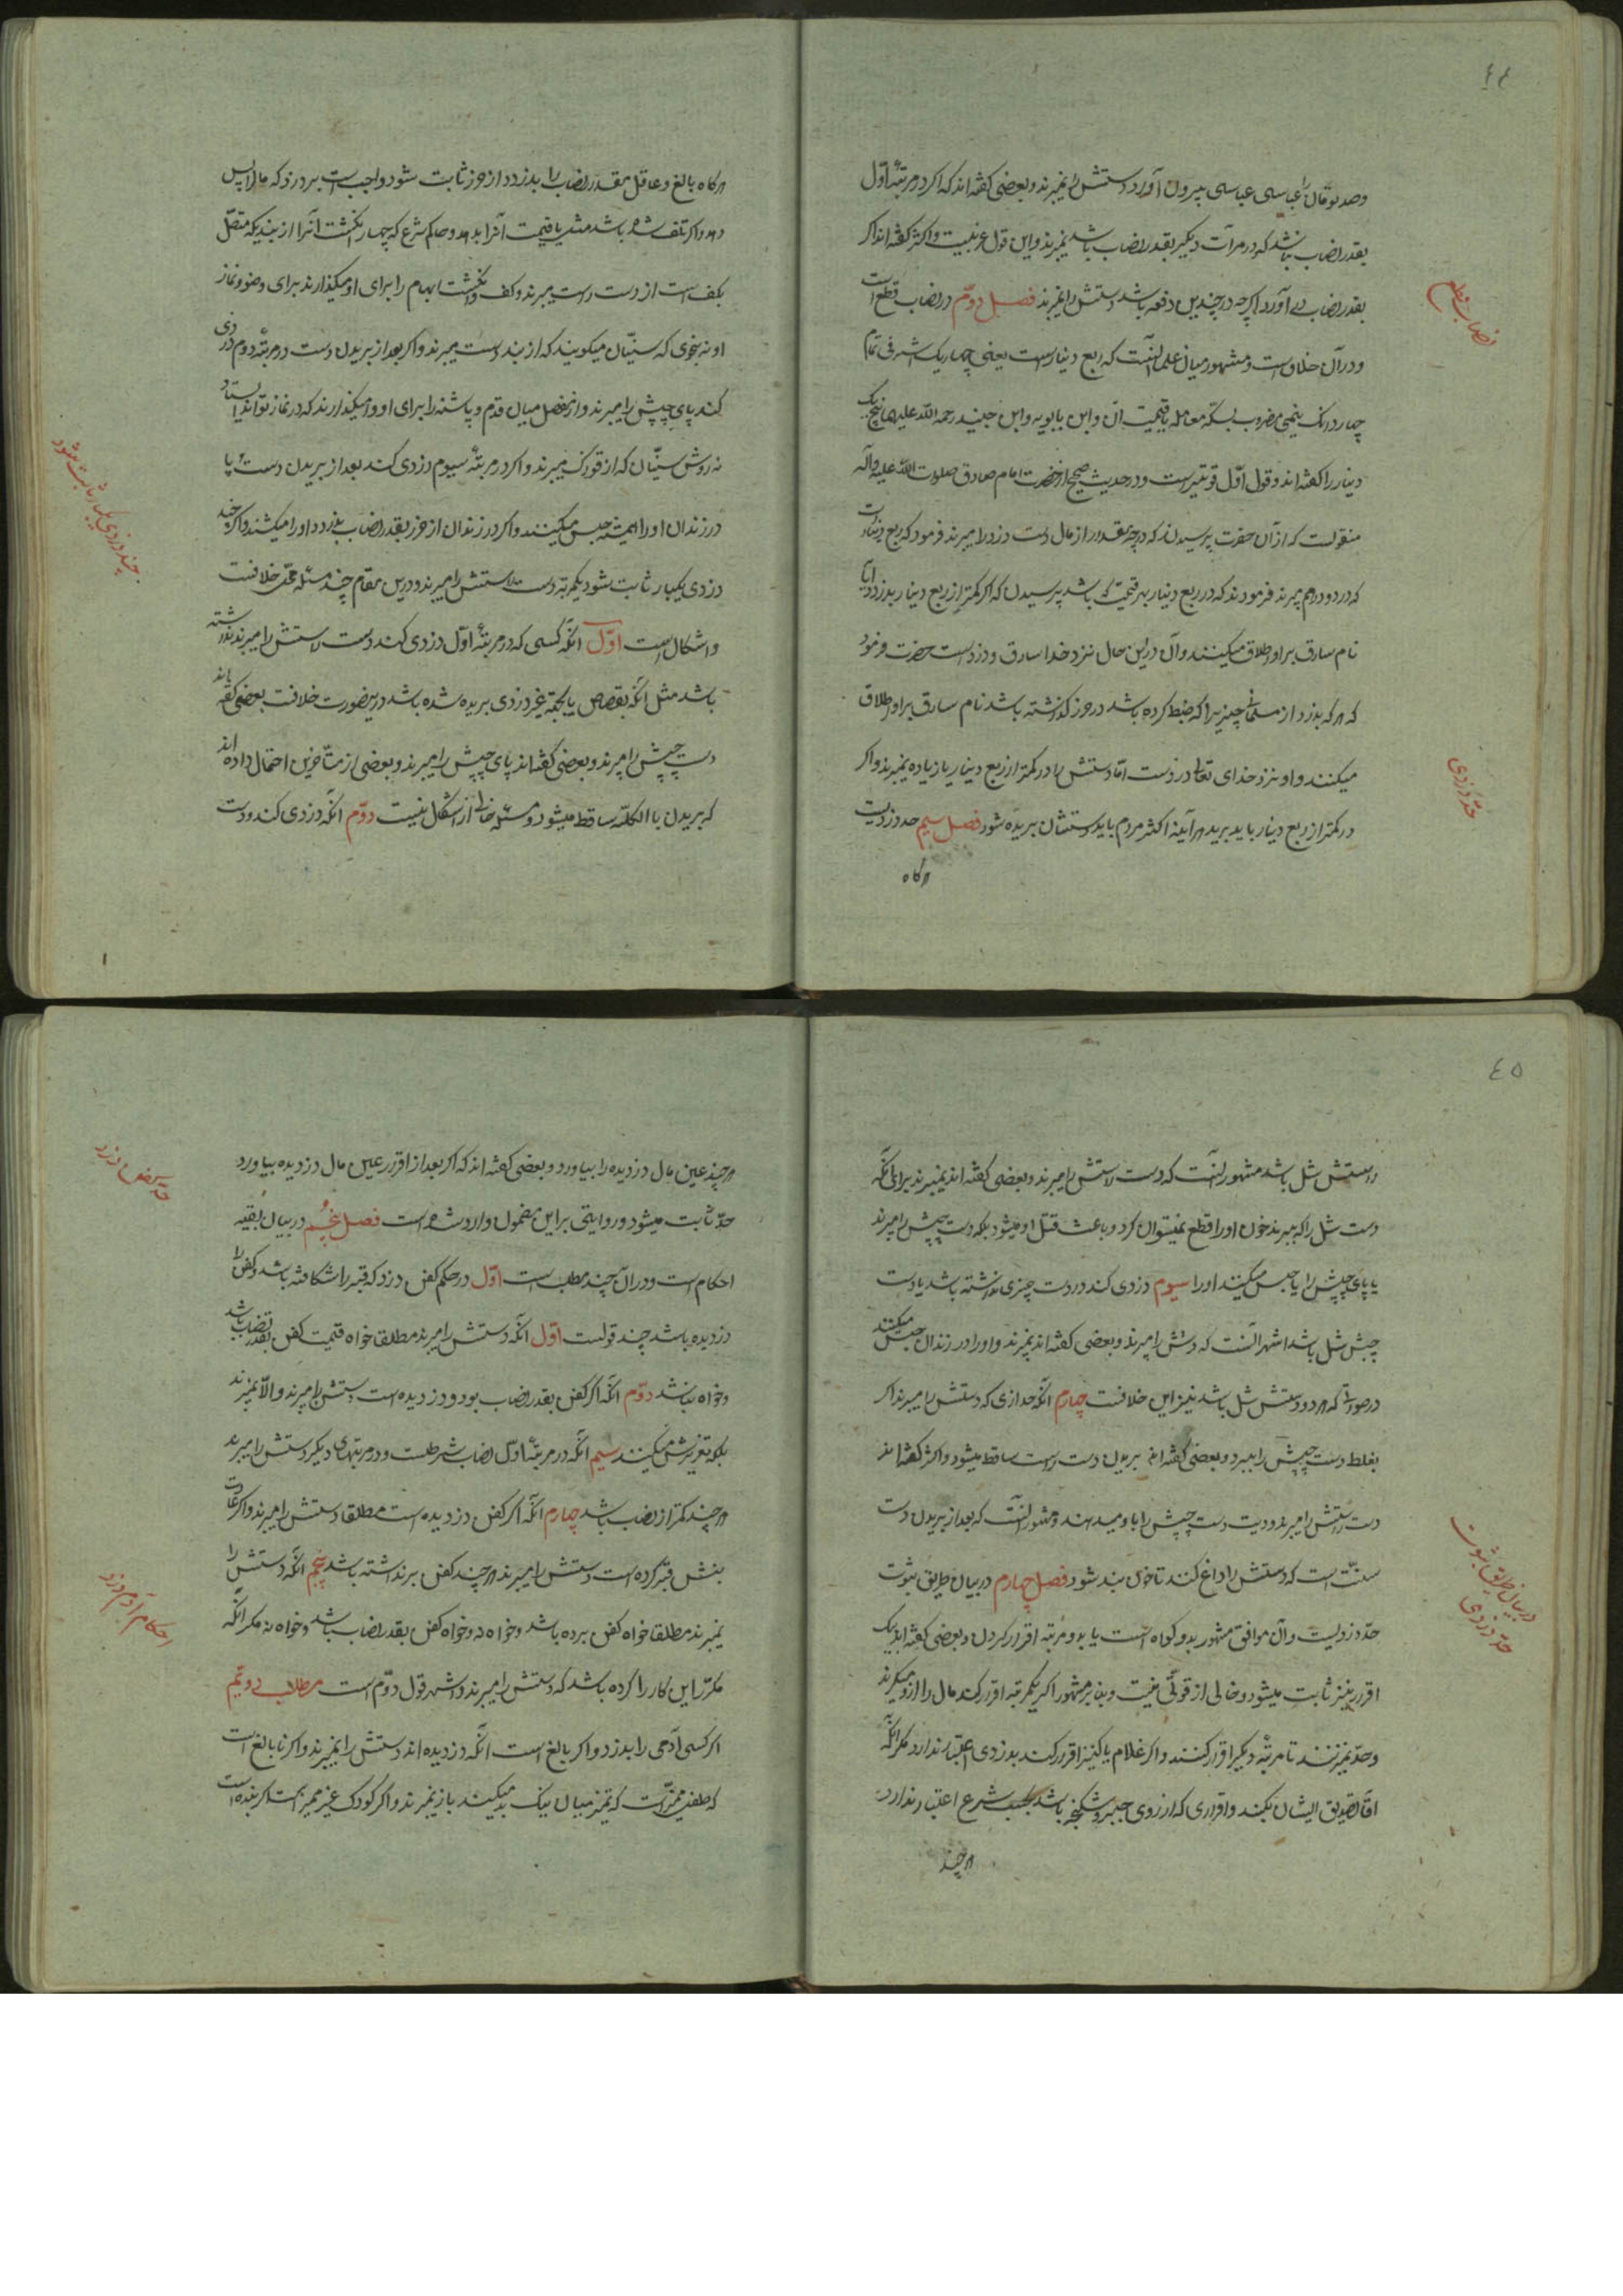 ٤٤
وصد تومان را عباسی عباسی بیرون آورد دستش را نمیبرند و بعضی گفته‌اند که اگر در مرتبهٔ اوّل
بقدر نصاب نباشد که در مرات دیگر بقدر نصاب باشد نمیبرند و این قول غریبیست و اکثر گفته‌اند اگر
بقدر نصاب آورد اگرچه در چندین دفعه باشد دستش را نمیبرند فصل دوّم در نصاب قطع است
و در آن خلافست و مشهور میان علما آنست که ربع دینارست یعنی چهار یک اشرفی تمام
چهار دانک نیمی مضروب بسکه معامله یا قیمت آن و ابن بابویه و ابن جنید رحمه الله علیهما پنج یک
دینار را گفته‌اند و قول اوّل قویتر است و در حدیث صحیح از حضرت امام صادق صلوات الله علیه وآله
منقولست که از آن حضرت پرسیدند که در چه مقدار از مال دست دزد را میبرند فرمود که ربع دینار است
که در دو درهم میبرند فرمودند که در ربع دینار بهر قیمت که باشد پرسیدن که اگر کمتر از ربع دینار بدزدد آیا
نام سارق بر او اطلاق میکنند و آن در این حال نزد خدا سارق و دزد است حضرت فرمود
که هر که بدزد از مسلمانی چیزیرا که ضبط کرده باشد در حرز گذاشته باشد نام سارق بر او اطلاق
میکنند و او نزد خدای تعالی دزدست امّا دستش را در کمتر از ربع دینار یا زیاده نمیبرند و اگر
در کمتر از ربع دینار باید برید هرآینه اکثر مردم باید دستشان بریده شود فصل سیم حد دزدیست
هرگاه
نصاب قطع
حدّ دزدی
هرگاه بالغ و عاقل بمقدار نصاب را بدزدد از حرز ثابت شود واجب است بر دزد که مال را پس
دهد و اگر تلف شده باشد مثل یا قیمت آنرا بدهد و حاکم شرع که چهار انگشت آنرا از بندیکه متصّل
بکف است از دست راست میبرند و کف و انگشت ابهام را برای او میگذارند برای وضو و نماز
او نه بنحوی که سنیّان میگویند که از بند دست میبرند و اگر بعد از بریدن دست در مرتبهٔ دوم دزدی
کند پای چپش را میبرند و از مفصل میان قدم و پاشنه را برای او وامیگذارند که در نماز تواند ایستاد
نه روش سنیّان که از قوزک میبرند و اگر در مرتبهٔ سیوم دزدی کند بعد از بریدن دست و پا
در زندان او را همیشه حبس میکنند و اگر در زندان از حرز بقدر نصاب بدزدد او را میکشند و اگر چند
دزدی یکبار ثابت شود یکمرتبه دست راستش را میبرند و درین مقام چند مسئله محلّ خلافست
و اشکال است اوّل آنکه کسی که در مرتبهٔ اوّل دزدی کند دست راستش را میبرند نداشته
باشد مثل آنکه بقصاص یا بجهة غیر دزدی بریده شده باشد درینصورت خلافست بعضی گفته‌اند
دست چپش را میبرند و بعضی گفته‌اند پای چپش را میبرند و بعضی از متأخرین احتمال داده‌اند
که بریدن بالکلیه ساقط میشود و مسئله خالی از اشکال نیست دوّم آنکه دزدی کند و دست
چند دزدی یکبار ثابت شود
٤٥
راستش شل باشد مشهور آنست که دست راستش را میبرند و بعضی گفته‌اند نمیبرند برای آنکه
دست شل را که ببرند خون او را قطع نمیتوان کرد و باعث قتل او میشود بلکه دست چپش را میبرند
یا پای چپش را یا حبس میکنند او را سیوم دزدی کند در دست چیزی نداشته باشد یا دست
چپش شل باشد اشهر آنست که دستش را میبرند و بعضی گفته‌اند نمیبرند و او را در زندان حبس میکنند
در صورتی که هر دو دستش شل باشد نیز این خلافست چهارم آنکه حدادی که دستش را میبرند اگر
بغلط دست چپش را ببرد و بعضی گفته‌اند بریدن دست راست ساقط میشود و اکثر گفته‌اند
دست راستش را میبرند و دیت دست چپش را باو میدهند و مشهور آنست که بعد از بریدن دست
سنّت است که دستش را داغ کنند تا خون بند شود فصل چهارم در بیان طریق ثبوت
حدّ دزدیست و آن موافق مشهور بدو گواه است یا بدو مرتبه اقرار کردن و بعضی گفته‌اند بیک
اقرار نیز ثابت میشود و خالی از قوتی نیست و بنا بر مشهور اگر یکمرتبه اقرار کند مال را از او میگیرند
و حدّ نمیزنند تا مرتبهٔ دیگر اقرار کنند و اگر غلام یا کنیز اقرار کند بدزدی اعتبار ندارد مگر آنکه
آقا تصدیق ایشان بکند و اقراری که از روی جبر و شکنجه باشد بحسب شرع اعتبار ندارد
هرچند
در بیان طریق ثبوت
حدّ دزدی
هرچند عین مال دزدیده را بیاورد و بعضی گفته‌اند که اگر بعد از اقرار عین مال دزدیده بیاورد
حدّ ثابت میشود و روایتی بر این مضمون وارد شده است فصل پنجم در بیان بقیه
احکام است و در آن چند مطلب است اوّل در حکم کفن دزد که قبر را شکافته باشد و کفن را
دزدیده باشد چند قولست اوّل آنکه دستش را میبرند مطلقا خواه قیمت کفن بقدر نصاب باشد
و خواه نباشد دوّم آنکه اگر کفن بقدر نصاب بود و دزدیده است دستش را میبرند و الّا نمیبرند
بلکه تعزیرش میکنند سیم آنکه در مرتبهٔ اوّل نصاب شرطست و در مرتبهای دیگر دستش را میبرند
هرچند کمتر از نصاب باشد چهارم آنکه اگر کفن دزدیده است مطلقا دستش را میبرند و اگر عادت
بنبش قبر کرده است دستش را میبرند هرچند کفن برنداشته باشد پنجم آنکه دستش را
نمیبرند مطلقا خواه کفن برده باشد و خواه نه و خواه کفن بقدر نصاب باشد و خواه نه مگر آنکه
مکرّر این کار را کرده باشد که دستش را میبرند و اشهر قول دوّم است مطلب دویّم
اگر کسی آدمی را بدزدد و اگر بالغ است آنکه دزدیده‌اند دستش را نمیبرند و اگر نابالغ است
که طفل ممیّز است که تمیز میان نیک و بد میکند باز نمیبرند و اگر کودک غیر ممیز است اگر بنده است
حدّ کفن دزد
احکام آدم دزد